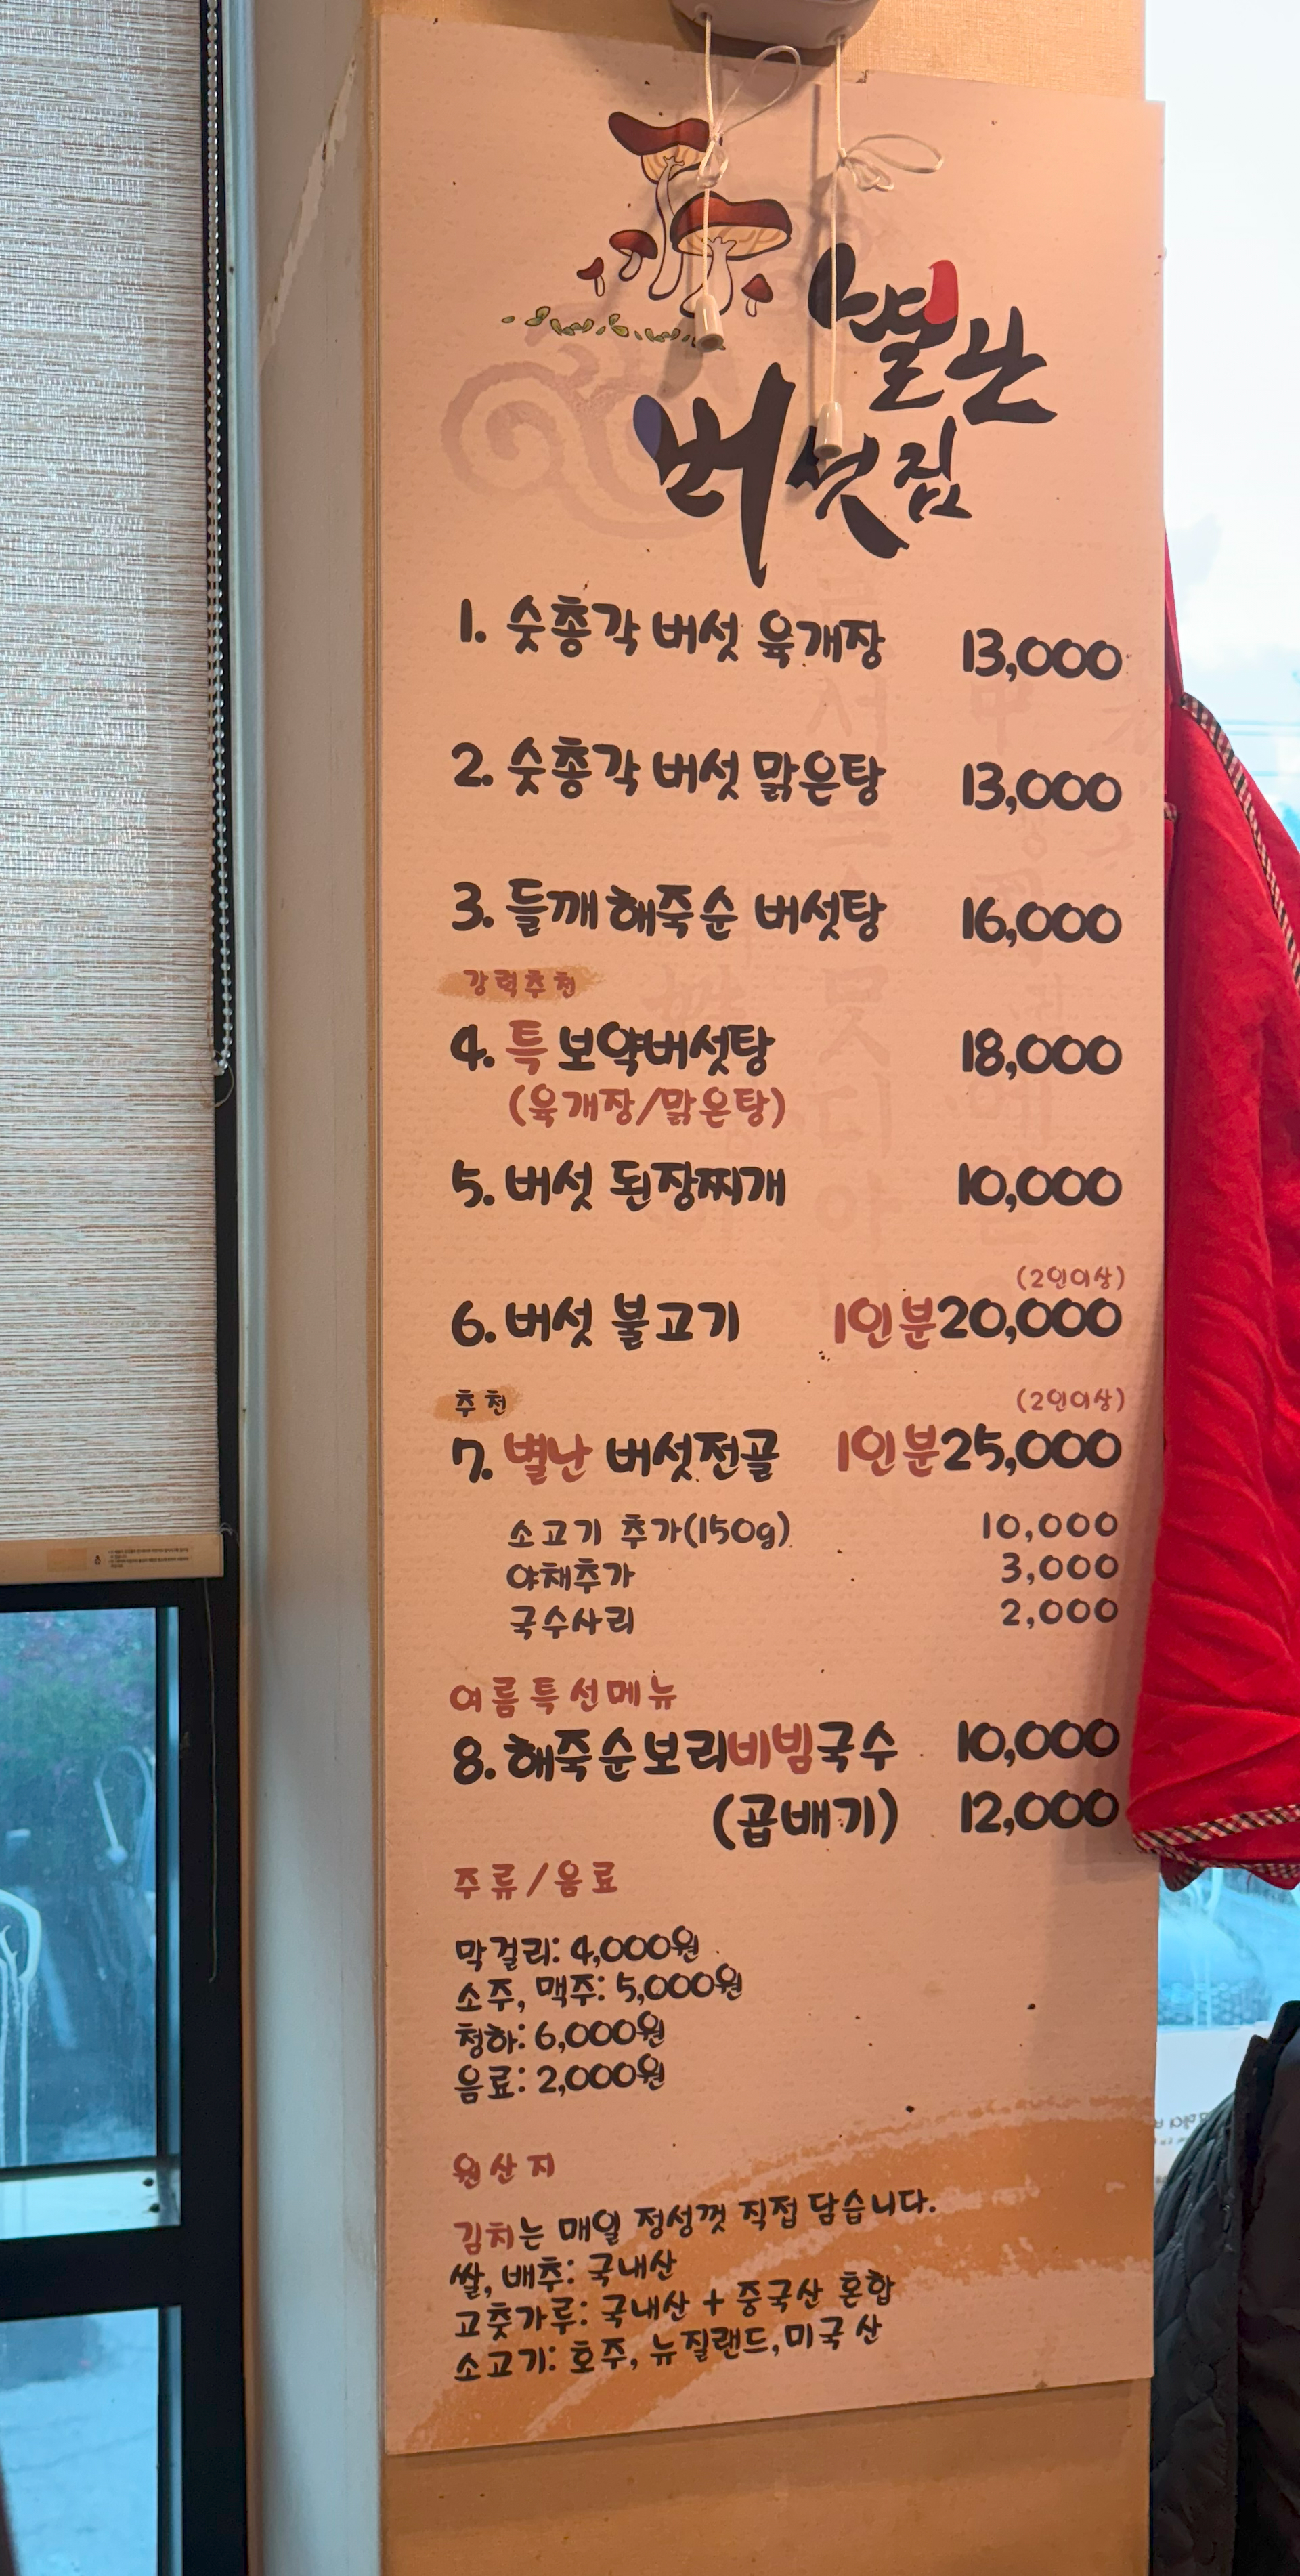 별난
버섯집
1. 숫총각 버섯 육개장 13,000
2. 숫총각 버섯 맑은탕 13,000
3. 들깨 해죽순 버섯탕 16,000
강력추천
4. 특 보약버섯탕 18,000
(육개장/맑은탕)
5. 버섯 된장찌개 10,000
(2인이상)
6. 버섯 불고기 1인분20,000
추천 (2인이상)
7. 별난 버섯전골 1인분25,000
소고기 추가(150g) 10,000
야채추가 3,000
국수사리 2,000
여름특선메뉴
8. 해죽순보리비빔국수 10,000
(곱배기) 12,000
주류/음료
막걸리: 4,000원
소주, 맥주: 5,000원
청하: 6,000원
음료: 2,000원
원산지
김치는 매일 정성껏 직접 담습니다.
쌀, 배추: 국내산
고춧가루: 국내산 + 중국산 혼합
소고기: 호주, 뉴질랜드, 미국산